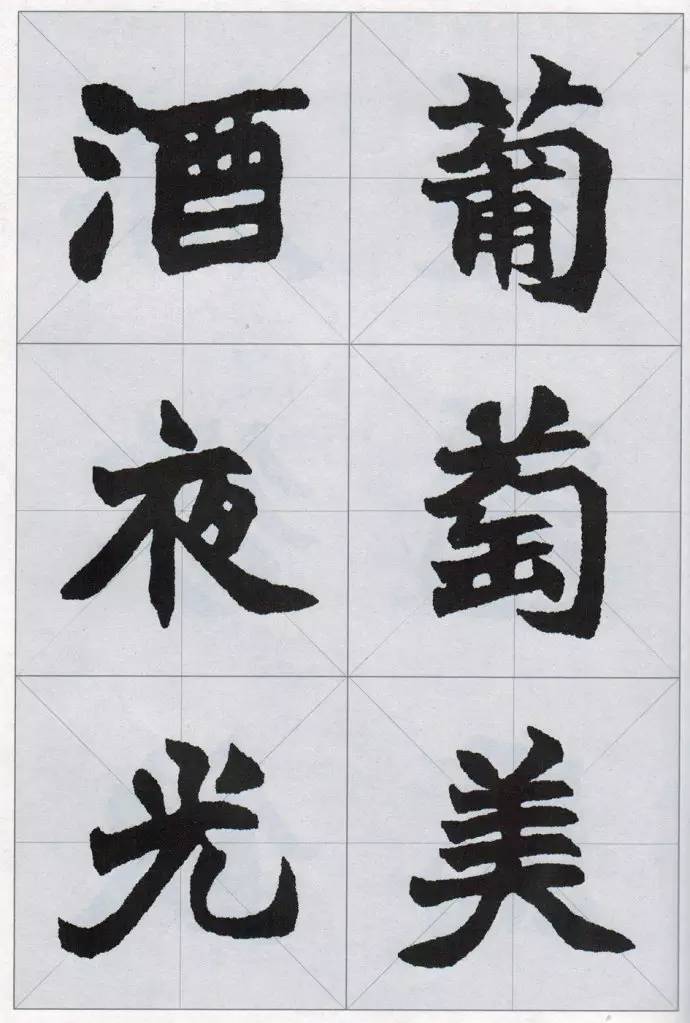 葡萄美
酒夜光